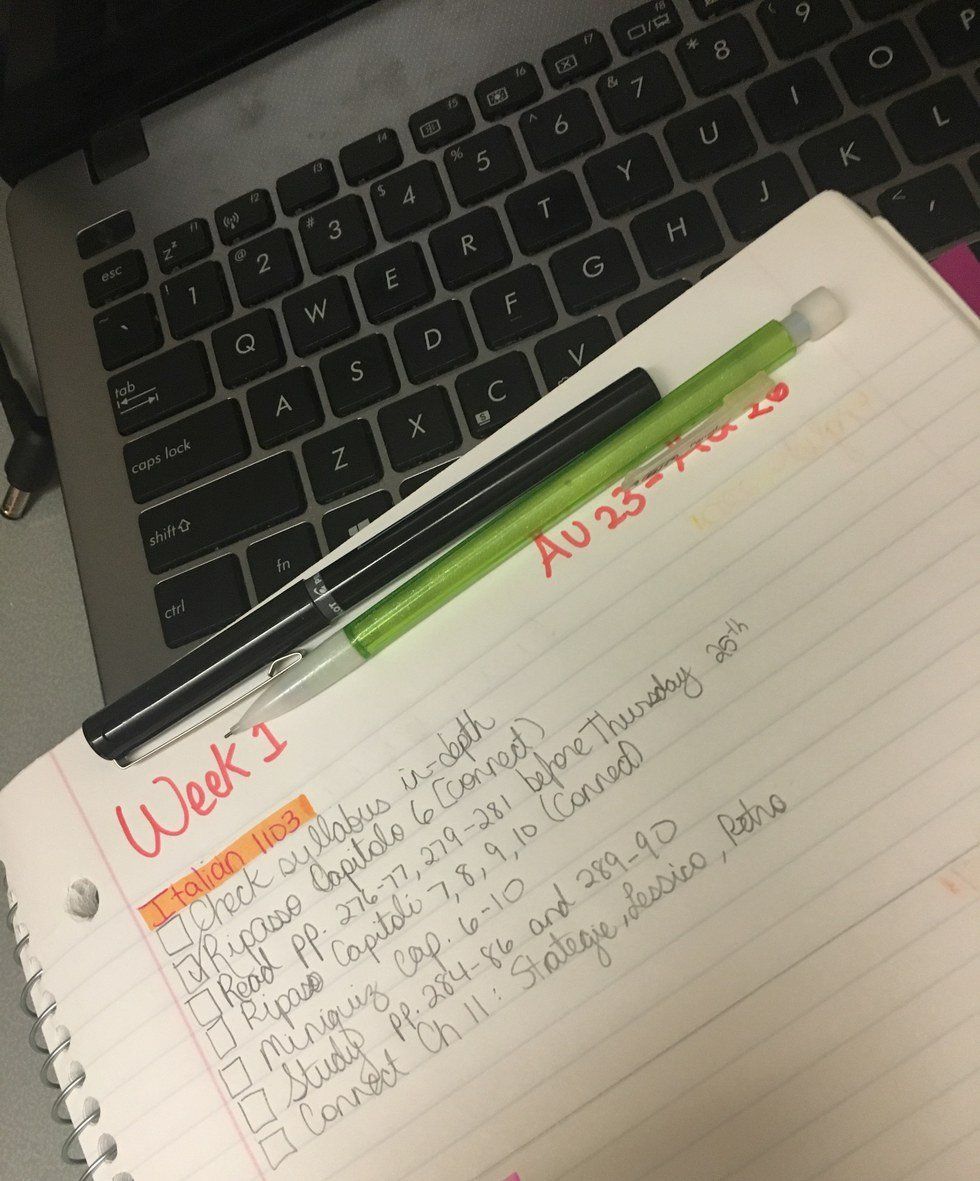 f1 f2 f3 f4 f5 f6 f7 f8
esc z z
~ ` ! 1 @ 2 # 3 $ 4 % 5 ^ 6 & 7 * 8 ( 9
tab Q W E R T Y U I O P
caps lock A S D F G H J K L
shift Z X C V < ,
ctrl fn
AU 23 - AU 26
Week 1
Italian 1103
Check syllabus in-depth
Ripasso Capitolo 6 (Connect)
Read pp. 276-77, 279-281 before Thursday 25th
Ripasso Capitoli 7, 8, 9, 10 (Connect)
Miniquiz Cap. 6-10
Study pp. 284-86 and 289-90
Connect Ch 11: Strategie, Lessico, Retro